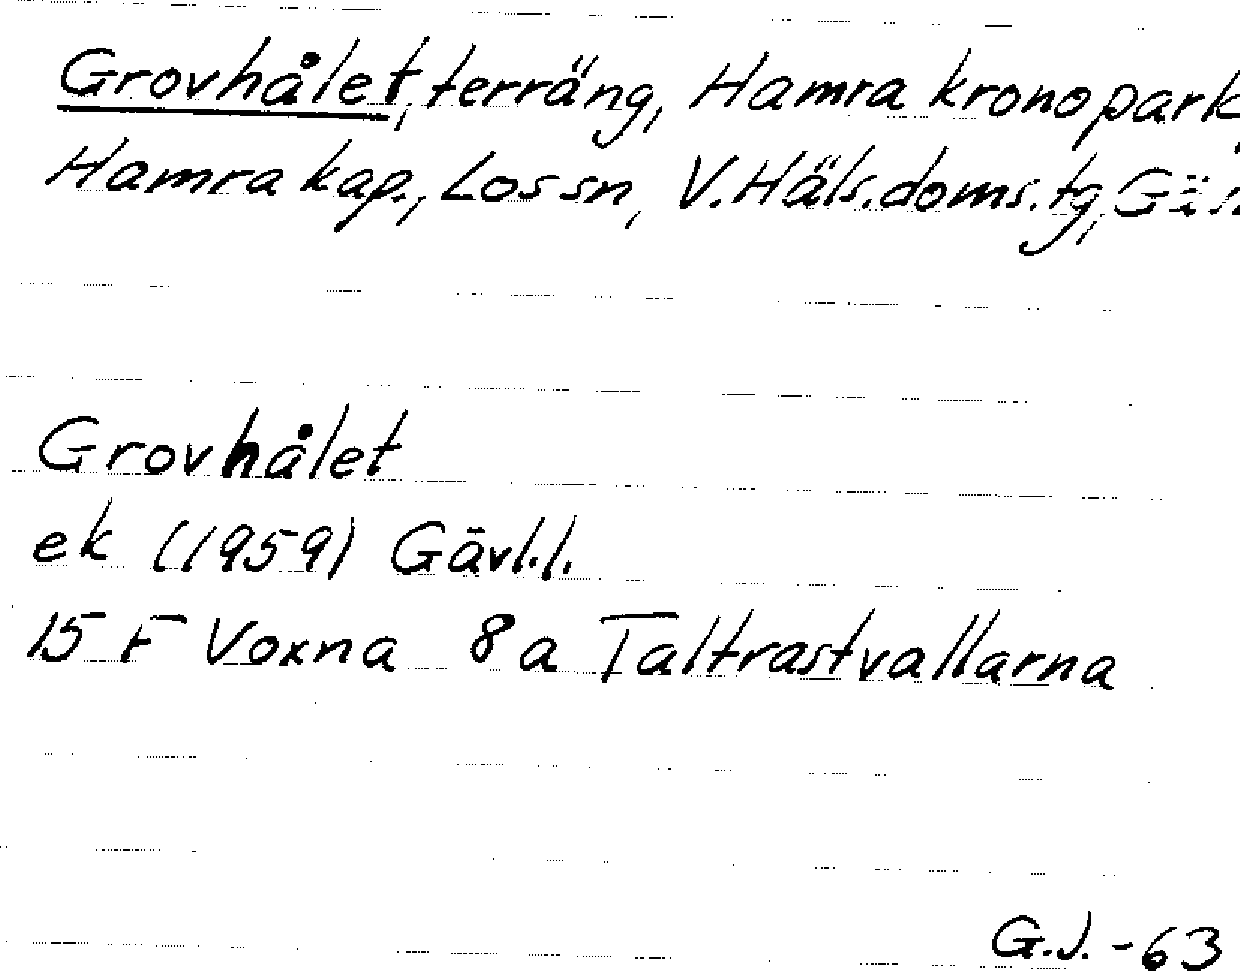 Grovhålet, terräng, Hamra kronopark,
Hamra kap., Los sn, V. Häls. doms. tg,
Grovhålet
ek (1959) Gävl.l.
15 F Voxna 8a Taltrastvallarna
G.J. -63